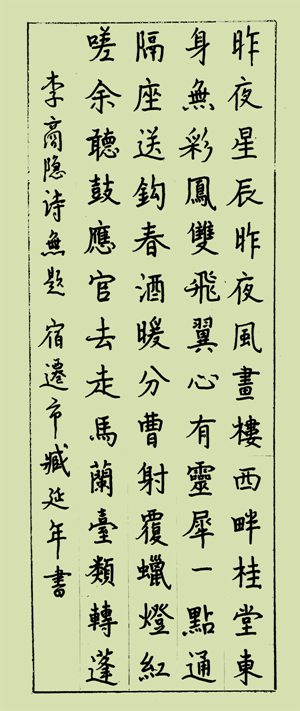 昨夜星辰昨夜風畫樓西畔桂堂東
身無彩鳳雙飛翼心有靈犀一點通
隔座送鈎春酒暖分曹射覆蠟燈紅
嗟余聽鼓應官去走馬蘭臺類轉蓬
李商隐诗無题 宿遷市臧延年書